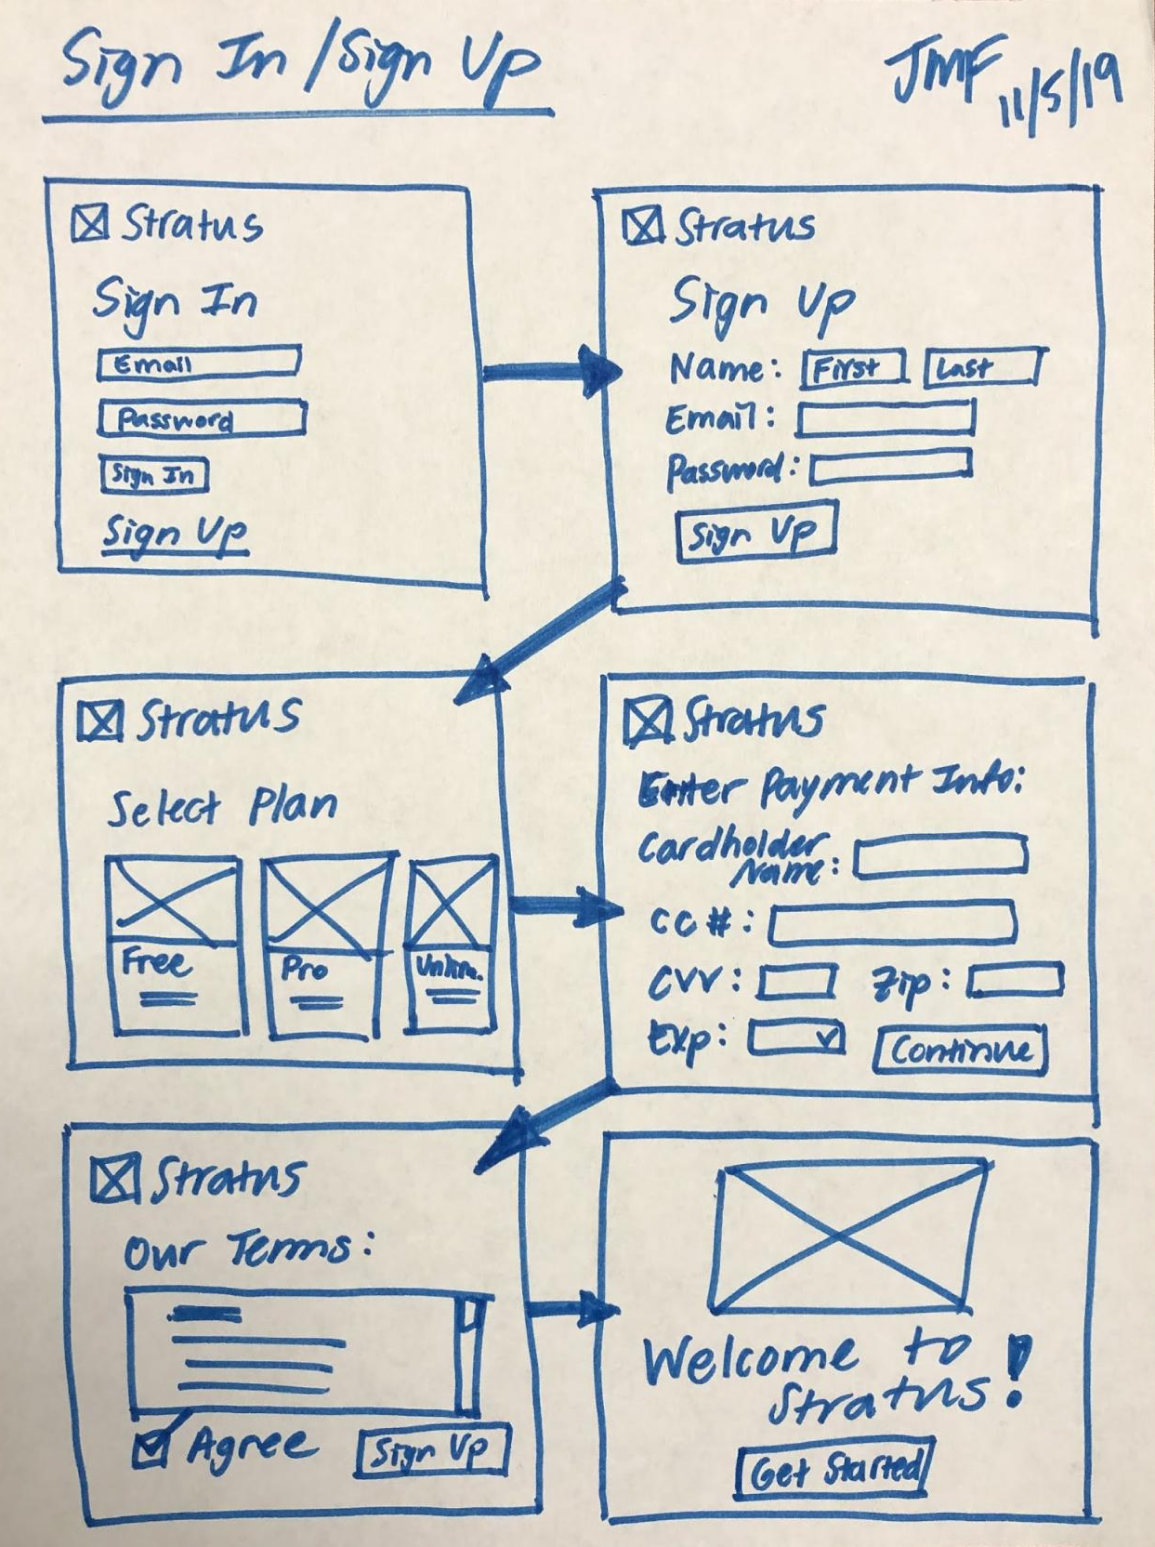 Sign In / Sign Up
JMF 11/5/19
Stratus
Sign In
Email
Password
Sign In
Sign Up
Stratus
Sign Up
Name: First Last
Email:
Password:
Sign Up
Stratus
Select Plan
Free
Pro
Stratus
Enter Payment Info:
Cardholder
Name:
CC#:
CVV: Zip:
Exp: Continue
Stratus
Our Terms:
Agree Sign Up
Welcome to
Stratus!
Get Started